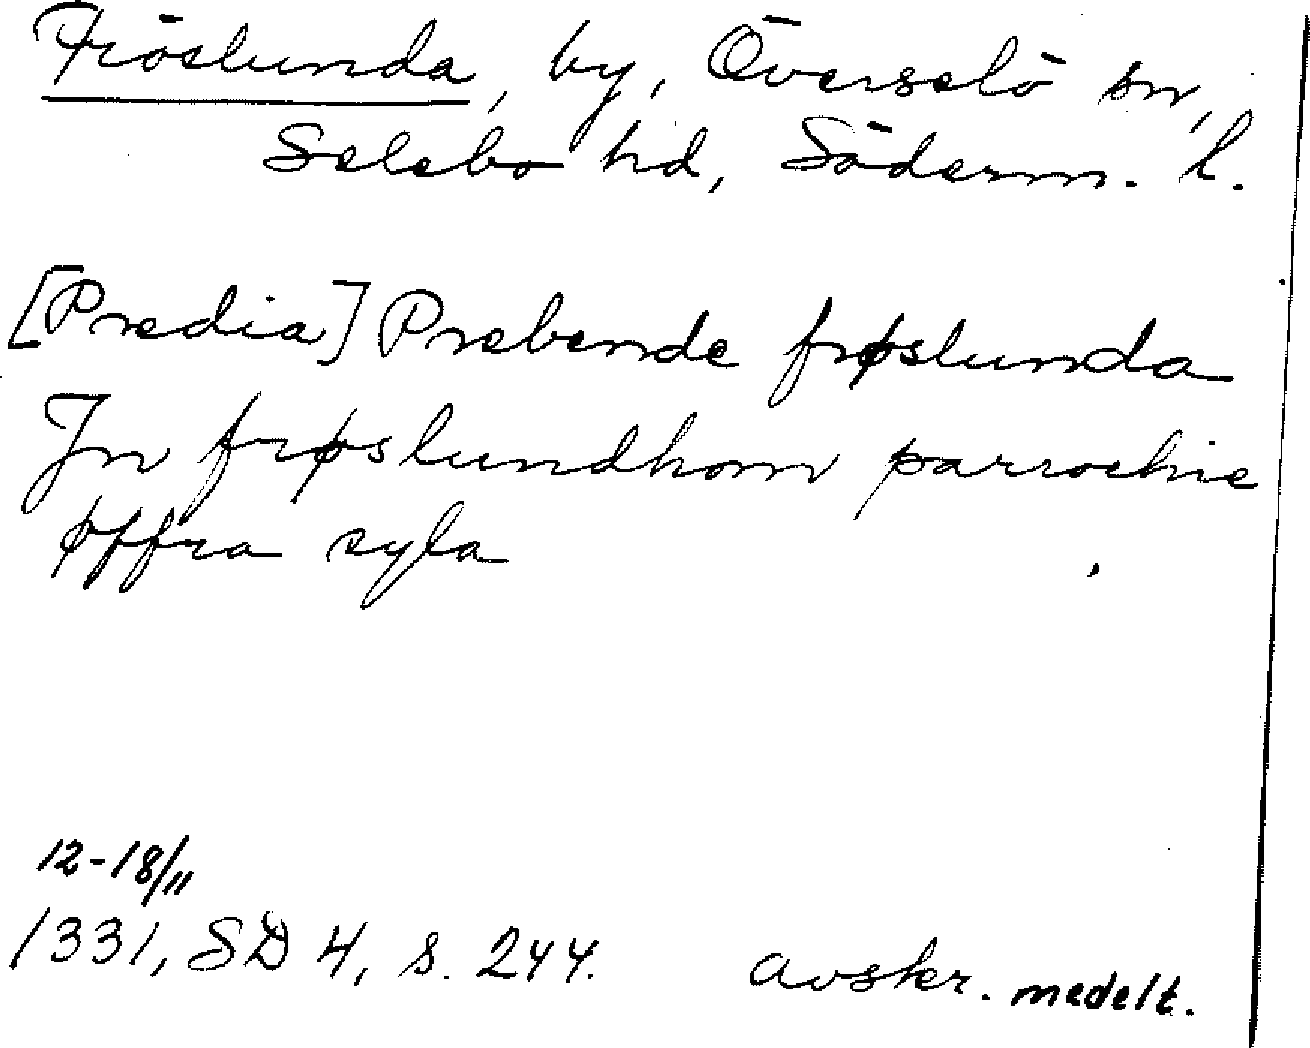 Fröslunda, by, Överselö sn,
Selebo hd, Söderm. l.
[Predia] Prebende frøslunda
Jn frøslundhom parrochie
øffra syla
12-18/11
1331, SD 4, s. 244.
avskr. medelt.